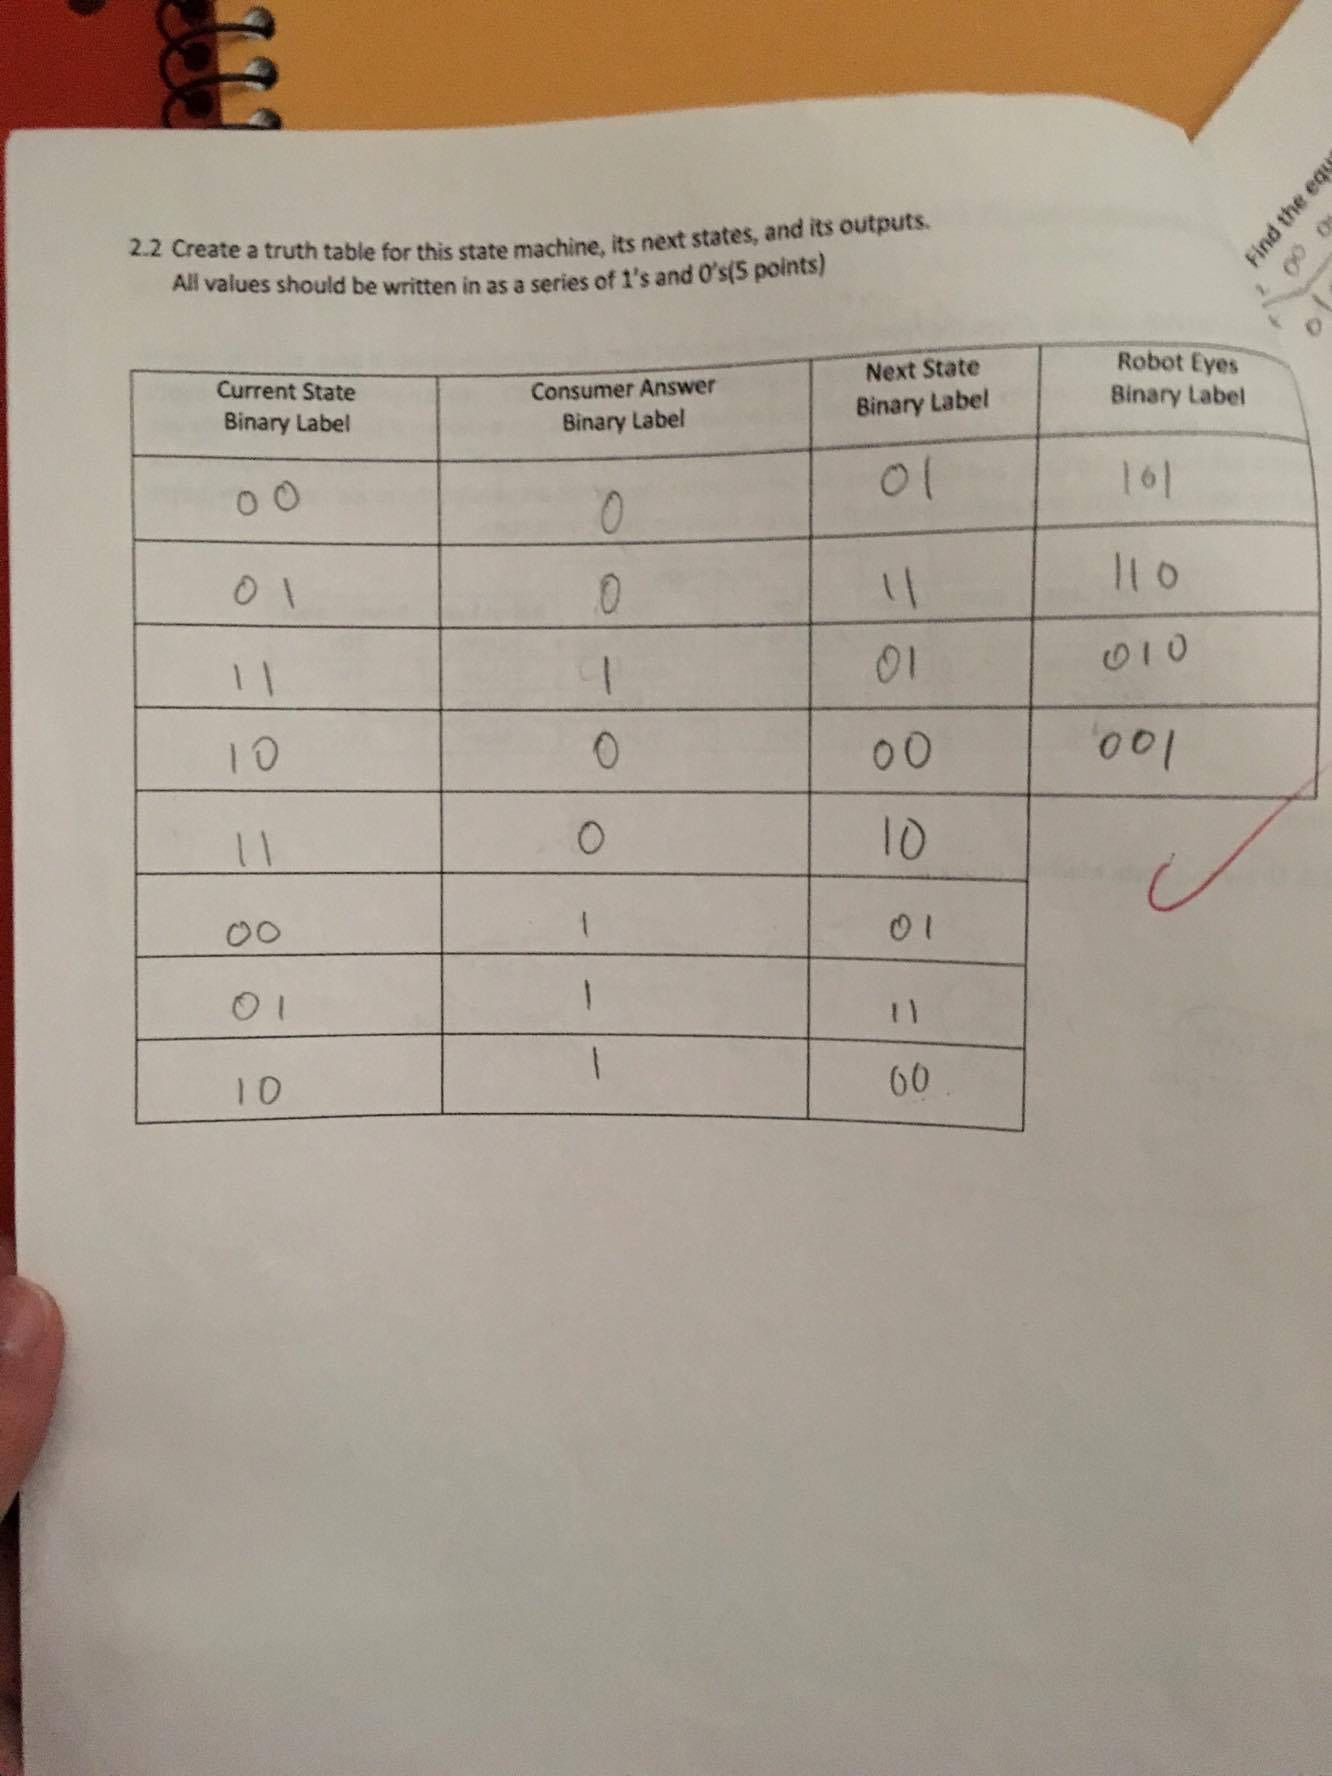 2.2 Create a truth table for this state machine, its next states, and its outputs.
All values should be written in as a series of 1's and 0's(5 points)
Find the
Current State Binary Label | Consumer Answer Binary Label | Next State Binary Label | Robot Eyes Binary Label
00 | 0 | 01 | 101
01 | 0 | 11 | 110
11 | 1 | 01 | 010
10 | 0 | 00 | 001
11 | 0 | 10
00 | 1 | 01
01 | 1 | 11
10 | 1 | 00